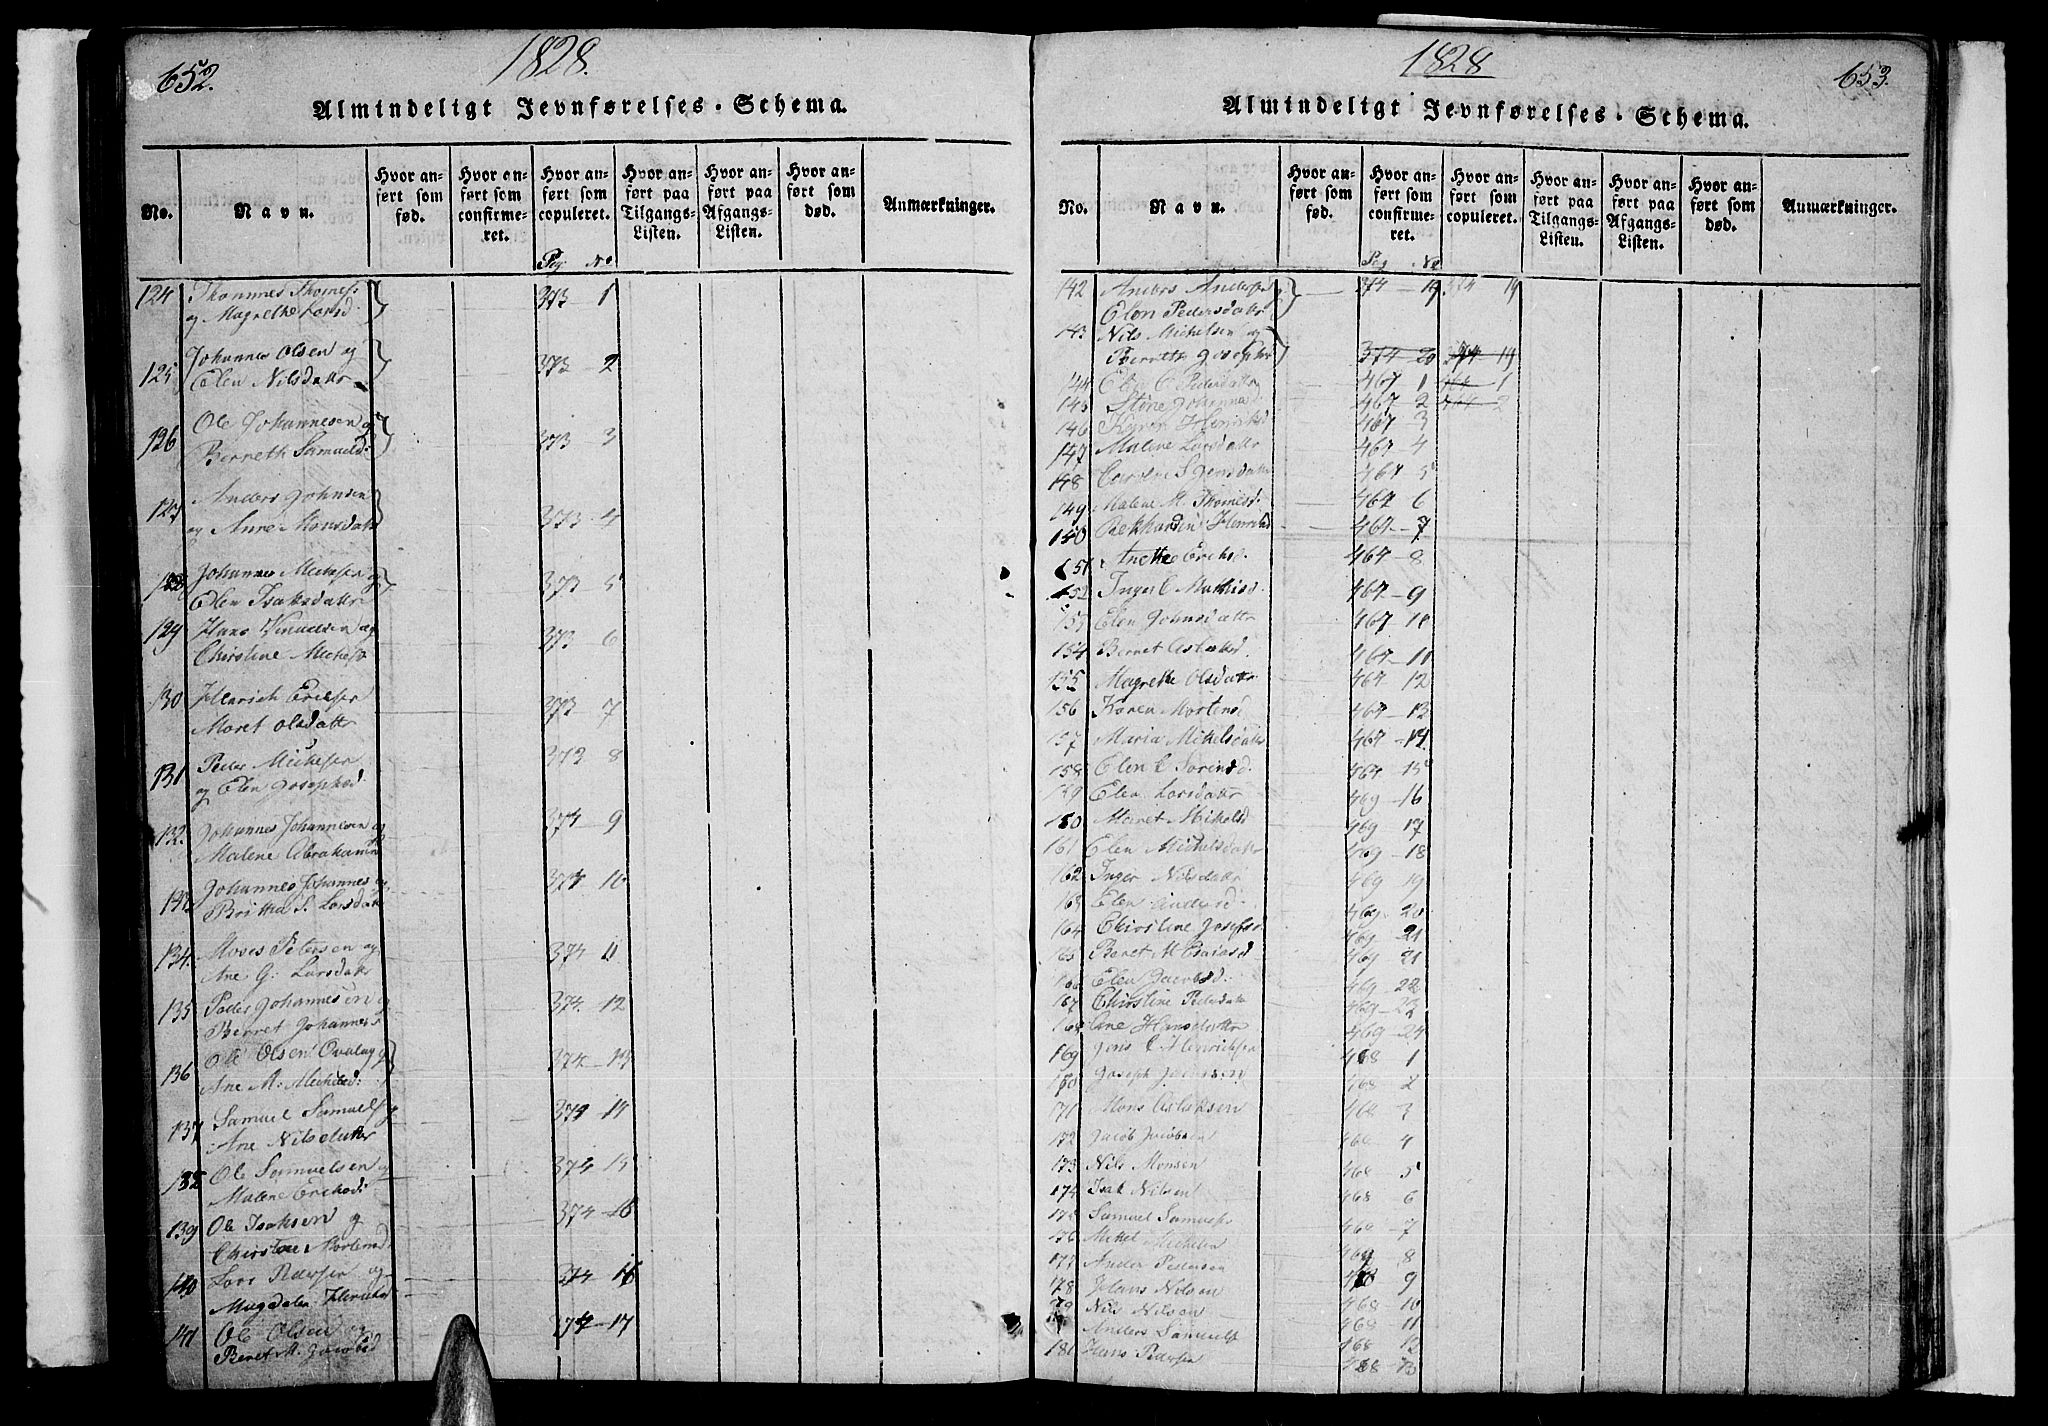 652.
1828.
Almindeligt Jevnførelses-Schema.
No.
Navn.
Hvor anført som fød.
Hvor anført som confirmeret.
Hvor anført som copuleret.
Hvor anført paa Tilgangs-Listen.
Hvor anført paa Afgangs-Listen.
Hvor anført som død.
Anmærkninger.
Pag No
124 Thommes Thomes:
og Magrethe Larsd: 373 1
125 Johannes Olsen og
Elen Nilsdattr 373 2
126 Ole Johannesen og
Berreth Samuelsd: 373 3
127 Anders Johnsen
og Anne Monsdattr 373 4
Johannes Michelsen og
Elen Isaksdattr 373 5
129 Hans
Christine Michelsd 373 6
130 Henrich Erichsen
Maret Olsdattr 373 7
131 Peder Michelsen
og Elen Josephsd: 373 8
132. Johannes Johannesen og
Malene Abraham 374 9
Johannes Johannes og
Britha S. Larsdattr 374 10
134. Moses Petersen og
Ane G: Larsdattr 374 11
135 Peder Johannesen og
Berret Johannes 374 12
136 Ole Olsen og
Ane M: Michelsd: 374 13
137 Samuel Samuels og
Ane Nilsdatter 374 14
138 Ole Samuelsen og
Malene Erichsd: 374 15
139 Ole Isaksen og
Christine Mortensd 374 16
140 Lars Pedersen og
Magdalen Henrichsd 374 16
141 Ole Olsen og
Beret M. Jacobsd 374 17
1828
653.
Almindeligt Jevnførelses-Schema.
No.
Navn.
Hvor anført som fød.
Hvor anført som confirmeret.
Hvor anført som copuleret.
Hvor anført paa Tilgangs-Listen.
Hvor anført paa Afgangs-Listen.
Hvor anført som død.
Anmærkninger.
Pag No
142 Anders Anders 374 19 374 19
Elen Pedersdattr
143 Nils Michelsen og
Berreth Josephsd 374 20 374 19
144 Elen C Pedersdattr 467 1 1
145 Stine Johannsd. 467 2 2
146 Karen Henriksd 467 3
147 Malene Larsdattr 467 4
148 Jensdattr 467 5
149 Malene M. Thomesd. 467 6
150 Henrichsd 467 7
151 Anethe Erichsd. 467 8
152 Inger C Mathisd. 467 9
Elen Johnsdattr 467 10
154 Berret Aslaksd. 467 11
155 Magrethe Olsdattr 467 12
156 Karen Mortensd 467 13
157 Maria Mikelsdattr 467 14
158 Elen C Sørensd. 467 15
159 Elen Larsdattr 469 16
160 Maret Mikelsd 469 17
161 Elen Michelsdattr 469 18
162 Inger Nilsdattr 469 19
163 Elen Andersd. 469 20
164 Christine Josefsd. 469 21
165 Beret M Esaiasd 469 21
166 Elen Jacobsd. 469 22
167 Christine Pedersdattr 469 23
168 Ane Hansdattr 469 24
169 Jens C Henrichsen 468 1
Joseph 468 2
171 Mons Aslaksen 468 3
172 Jacob Jacobsen 468 4
173 Nils Monsen 468 5
174 Isak Nilsen 468 6
175 Samuel Samuels 468 7
176 Mikel Mikelsen 8
177 Anders Pedersen 9
178 Hans Nilsen 468 10
179 Nils Nilsen 468 11
Anders Samuels 468 12
181 Hans Pedersen 468 13